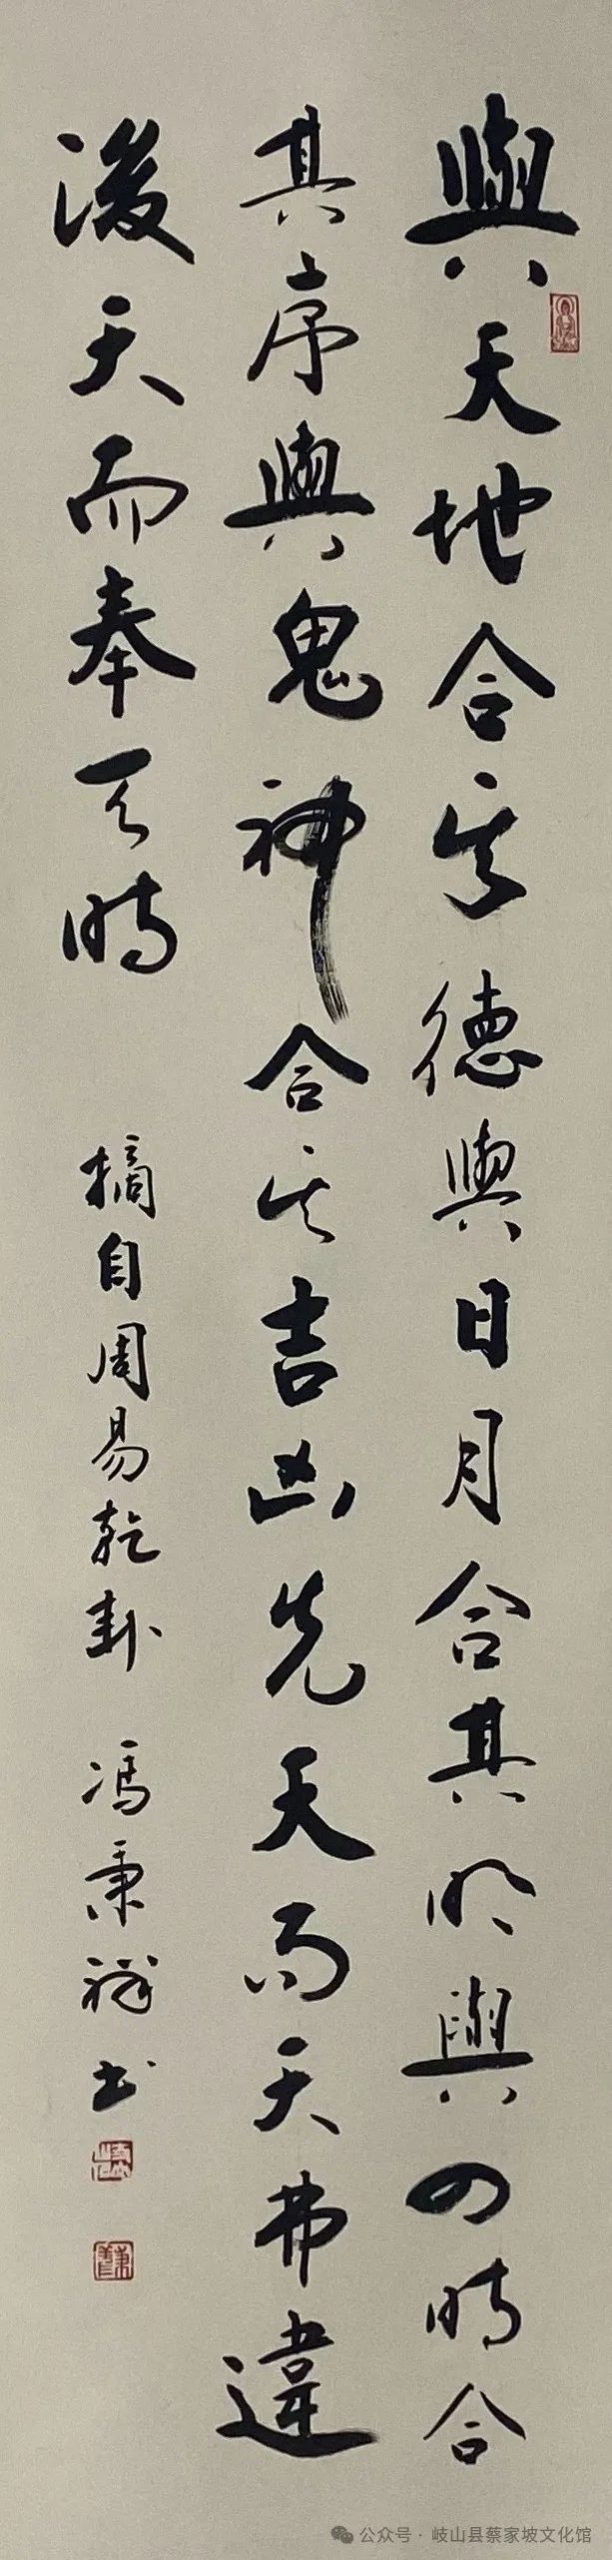 與天地合其德與日月合其明與四時合
其序與鬼神合其吉凶先天而天弗違
後天而奉天時
摘自周易乾卦 冯秉祥书
公众号·岐山县蔡家坡文化馆